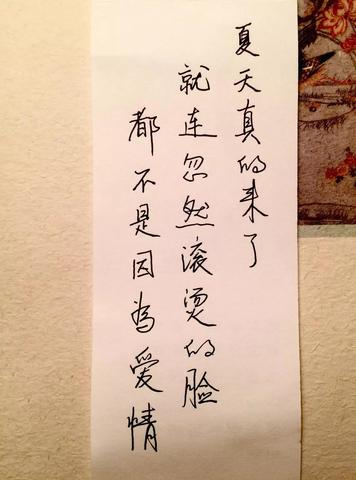 夏天真的来了
就连忽然滚烫的脸
都不是因为爱情